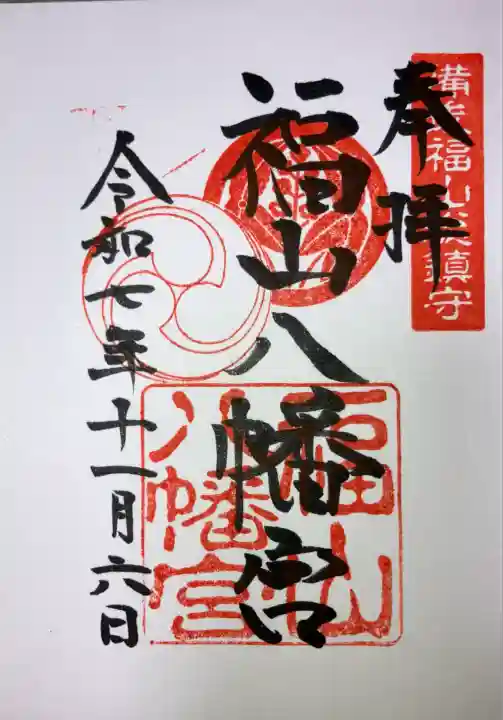 備後福山 鎮守
奉拝
福山八幡宮
福山
八幡宮
令和七年十一月六日